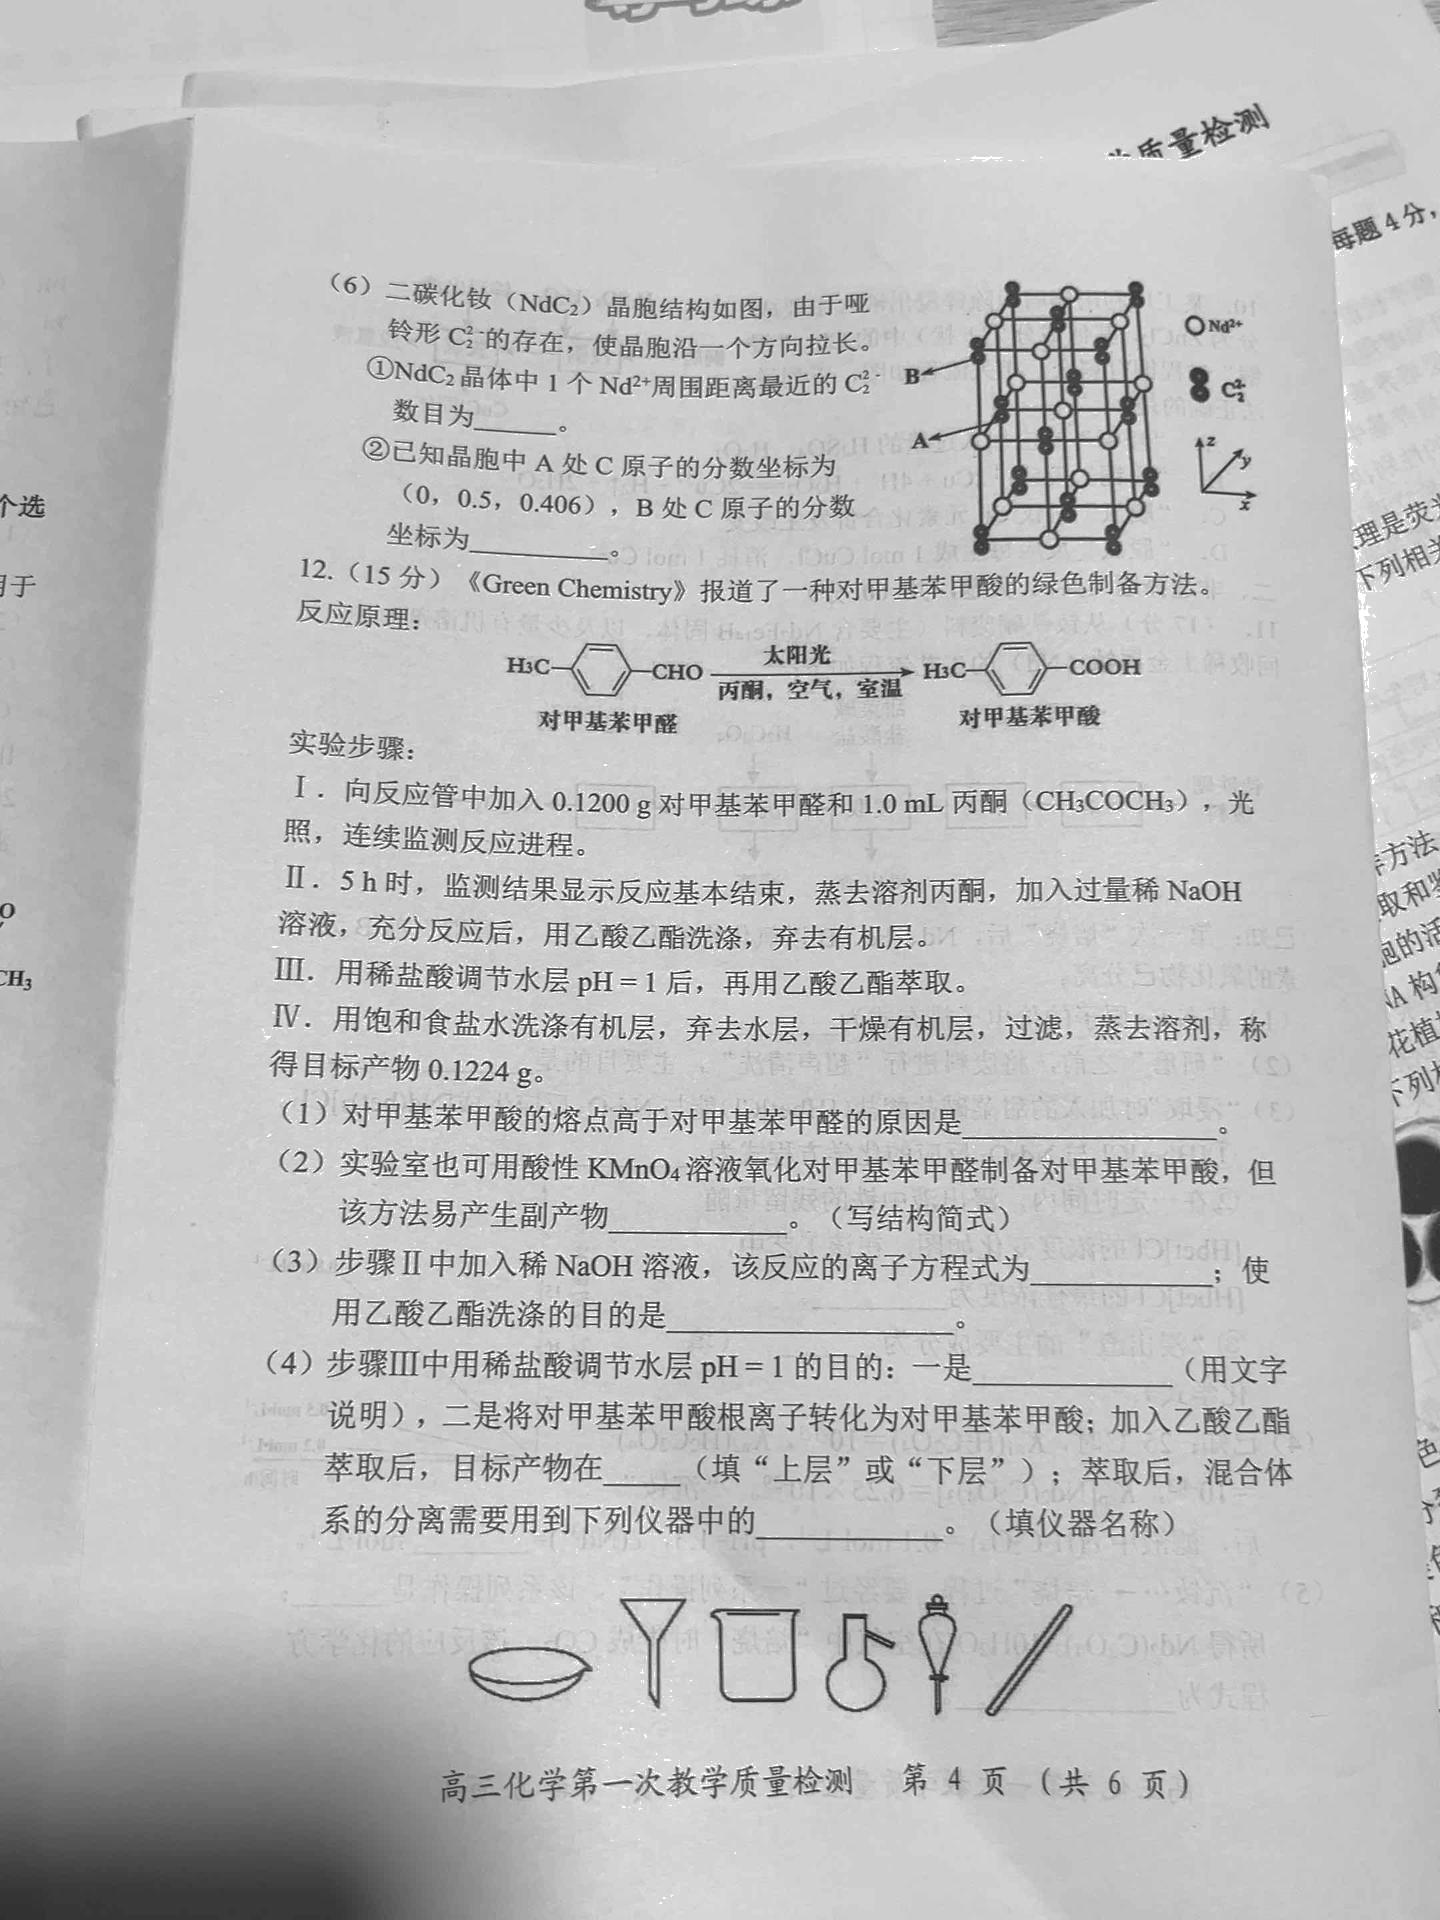 质量检测
每题4分，
（6）二碳化钕（NdC₂）晶胞结构如图，由于哑
铃形 C₂²⁻的存在，使晶胞沿一个方向拉长。
①NdC₂ 晶体中 1 个 Nd²⁺周围距离最近的 C₂²⁻
数目为______。
②已知晶胞中 A 处 C 原子的分数坐标为
（0，0.5，0.406），B 处 C 原子的分数
坐标为__________。
B
A
Nd²⁺
C₂²⁻
z
y
x
12.（15 分）《Green Chemistry》报道了一种对甲基苯甲酸的绿色制备方法。
反应原理：
H₃C
CHO
太阳光
丙酮，空气，室温
H₃C
COOH
对甲基苯甲醛
对甲基苯甲酸
实验步骤：
Ⅰ．向反应管中加入 0.1200 g 对甲基苯甲醛和 1.0 mL 丙酮（CH₃COCH₃），光
照，连续监测反应进程。
Ⅱ．5 h 时，监测结果显示反应基本结束，蒸去溶剂丙酮，加入过量稀 NaOH
溶液，充分反应后，用乙酸乙酯洗涤，弃去有机层。
Ⅲ．用稀盐酸调节水层 pH = 1 后，再用乙酸乙酯萃取。
Ⅳ．用饱和食盐水洗涤有机层，弃去水层，干燥有机层，过滤，蒸去溶剂，称
得目标产物 0.1224 g。
（1）对甲基苯甲酸的熔点高于对甲基苯甲醛的原因是__________________。
（2）实验室也可用酸性 KMnO₄ 溶液氧化对甲基苯甲醛制备对甲基苯甲酸，但
该方法易产生副产物____________。（写结构简式）
（3）步骤Ⅱ中加入稀 NaOH 溶液，该反应的离子方程式为____________；使
用乙酸乙酯洗涤的目的是__________________。
（4）步骤Ⅲ中用稀盐酸调节水层 pH = 1 的目的：一是____________（用文字
说明），二是将对甲基苯甲酸根离子转化为对甲基苯甲酸；加入乙酸乙酯
萃取后，目标产物在_____（填“上层”或“下层”）；萃取后，混合体
系的分离需要用到下列仪器中的____________。（填仪器名称）
高三化学第一次教学质量检测 第 4 页 （共 6 页）
个选
用于
CH₃
理是荧光
下列相关
方法
取和
胞的活
下列